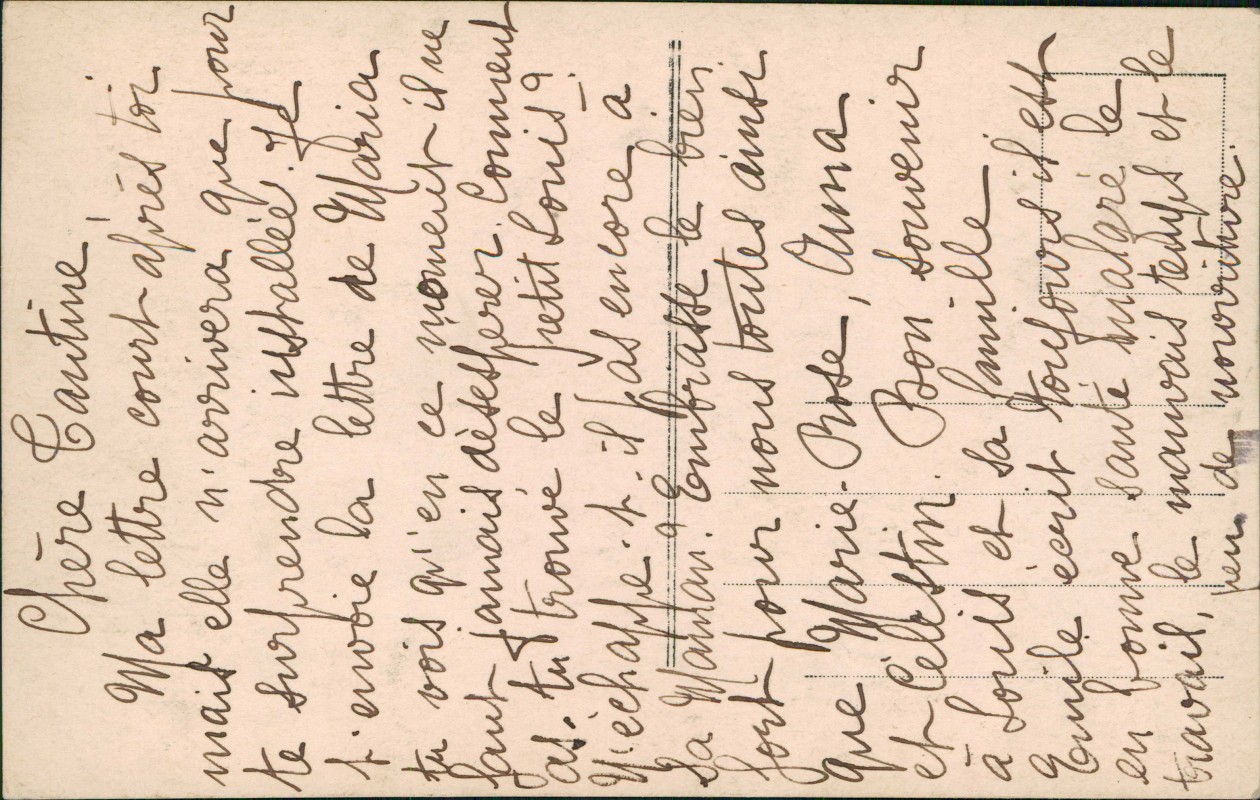 Chère Tantine,
Ma lettre court après toi
mais elle n'arrivera que pour
te surprendre installée. Je
t'envoie la lettre de Maria
tu vois qu'en ce moment il ne
faut jamais désespérer. Comment
as-tu trouvé le petit Louis?
N'échappe-t-il pas encore à
sa Maman? Embrasse le bien
fort pour nous toutes ainsi
que Marie-Rose, Anna
et Célestin. Bon souvenir
à Louis et sa famille
Emile écrit toujours il est
en bonne santé malgré le
travail, le mauvais temps et le
peu de nourriture.